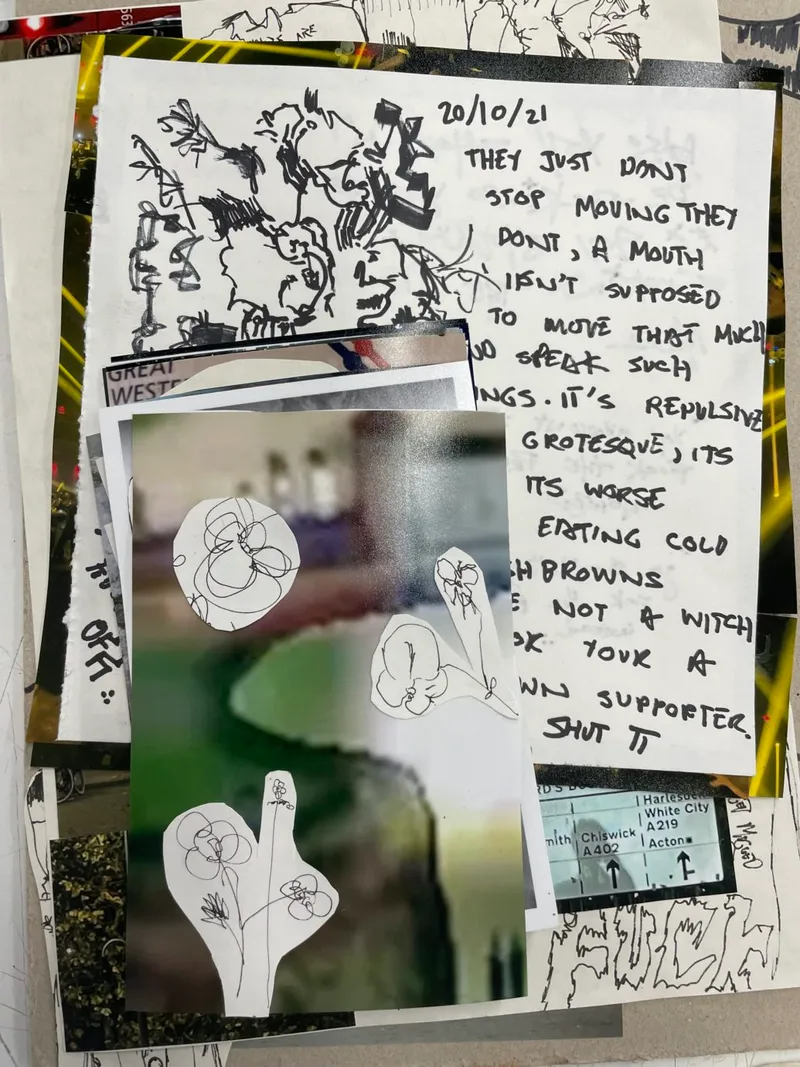 20/10/21
THEY JUST DONT
STOP MOVING THEY
DONT, A MOUTH
ISN'T SUPPOSED
TO MOVE THAT MUCH
SPEAK SUCH
INGS. IT'S REPULSIVE
GROTESQUE, ITS
ITS WORSE
EATING COLD
H BROWNS
NOT A WITCH
YOUR A
WN SUPPORTER.
SHUT IT
OFF
GREAT
WESTE
RD'S
Harlesde
White City
A219
mith
Chiswick
A402
Acton
ARE